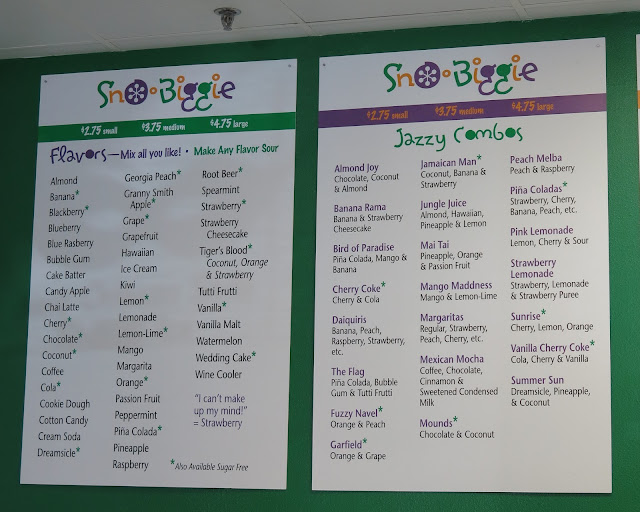 Sno•Biggie
$2.75 small $3.75 medium $4.75 large
Flavors—Mix all you like! • Make Any Flavor Sour
Almond
Banana*
Blackberry*
Blueberry
Blue Rasberry
Bubble Gum
Cake Batter
Candy Apple
Chai Latte
Cherry*
Chocolate*
Coconut*
Coffee
Cola*
Cookie Dough
Cotton Candy
Cream Soda
Dreamsicle*
Georgia Peach*
Granny Smith
Apple*
Grape*
Grapefruit
Hawaiian
Ice Cream
Kiwi
Lemon*
Lemonade
Lemon-Lime*
Mango
Margarita
Orange*
Passion Fruit
Peppermint
Piña Colada*
Pineapple
Raspberry
Root Beer*
Spearmint
Strawberry*
Strawberry
Cheesecake
Tiger's Blood*
Coconut, Orange
& Strawberry
Tutti Frutti
Vanilla*
Vanilla Malt
Watermelon
Wedding Cake*
Wine Cooler
"I can't make
up my mind!"
= Strawberry
*Also Available Sugar Free
Sno•Biggie
$2.75 small $3.75 medium $4.75 large
Jazzy Combos
Almond Joy
Chocolate, Coconut
& Almond
Banana Rama
Banana & Strawberry
Cheesecake
Bird of Paradise
Piña Colada, Mango &
Banana
Cherry Coke*
Cherry & Cola
Daiquiris
Banana, Peach,
Raspberry, Strawberry,
etc.
The Flag
Piña Colada, Bubble
Gum & Tutti Frutti
Fuzzy Navel*
Orange & Peach
Garfield*
Orange & Grape
Jamaican Man*
Coconut, Banana &
Strawberry
Jungle Juice
Almond, Hawaiian,
Pineapple & Lemon
Mai Tai
Pineapple, Orange
& Passion Fruit
Mango Maddness
Mango & Lemon-Lime
Margaritas
Regular, Strawberry,
Peach, Cherry, etc.
Mexican Mocha
Coffee, Chocolate,
Cinnamon &
Sweetened Condensed
Milk
Mounds*
Chocolate & Coconut
Peach Melba
Peach & Raspberry
Piña Coladas*
Strawberry, Cherry,
Banana, Peach, etc.
Pink Lemonade
Lemon, Cherry & Sour
Strawberry
Lemonade
Strawberry, Lemonade
& Strawberry Puree
Sunrise*
Cherry, Lemon, Orange
Vanilla Cherry Coke*
Cola, Cherry & Vanilla
Summer Sun
Dreamsicle, Pineapple,
& Coconut